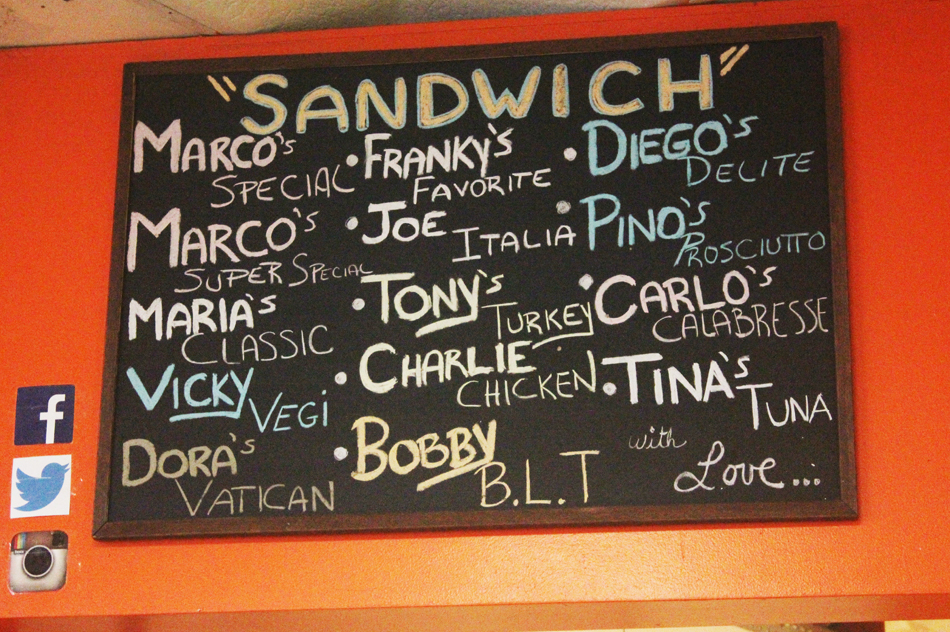 "SANDWICH"
MARCO'S
SPECIAL
MARCO'S
SUPER SPECIAL
MARIA'S
CLASSIC
VICKY
VEGi
DORA'S
VATICAN
• FRANKY'S
FAVORITE
• JOE
ITALIA
• TONY'S
TURKEY
• CHARLIE
CHICKEN
• BOBBY
B.L.T
• DIEGO'S
DELITE
• PINO'S
PROSCIUTTO
• CARLO'S
CALABRESSE
• TINA'S
TUNA
with
Love...
f